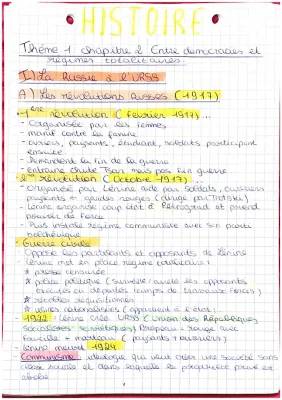 HISTOIRE
Thème 1 chapitre 2 Entre démocraties et
régimes totalitaires.
I) La Russie à l'URSS
A) Les révolutions Russes (1917)
-1ère révolution (février 1917)...
- Organisée par les femmes
- manif contre la famine
- ouvriers, paysans, étudiant, soldats participent
ensuite
- Demandent la fin de la guerre
- entraine chute Tsar mais pas fin guerre
- 2ème révolution (Octobre 1917)...
- Organisée par Lénine aidé par soldats, ouvriers
paysans + gardes rouges (dirigé par Trotski)
- Lénine organise coup d'état à Pétrograd et prend
pouvoir de force
- Puis installe régime communiste avec son parti
bolchévique
- Guerre civile
Oppose les partisants et opposants de Lénine
Lénine met en place régime totalitaire :
* presse censurée
* police politique (surveille/arrête les opposants
exécutés ou déportés camps de travaux forcés)
* récoltes réquisitionnés
* usines nationalisées (appartient à l'état)
1922 : Lénine crée URSS (Union des Républiques
Socialistes Soviétiques) Drapeau : rouge avec
faucille + marteau (paysans + ouvriers)
Lénine meurt 1924
Communisme : idéologie qui veut créer une société sans
classe sociale et dans laquelle la propriété privé est
abolie